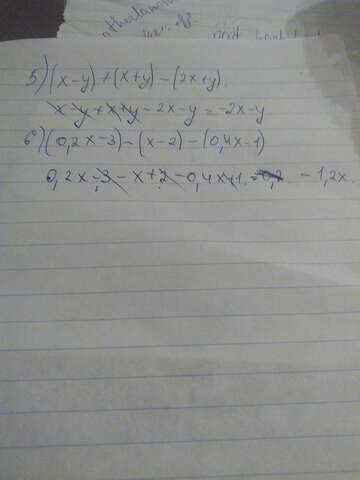 5) (x-y)+(x+y)-(2x+y).
x-y+x+y-2x-y=-2x-y
6) (0,2x-3)-(x-2)-(0,4x-1)
0,2x-3-x+2-0,4x+1= -1,2x.